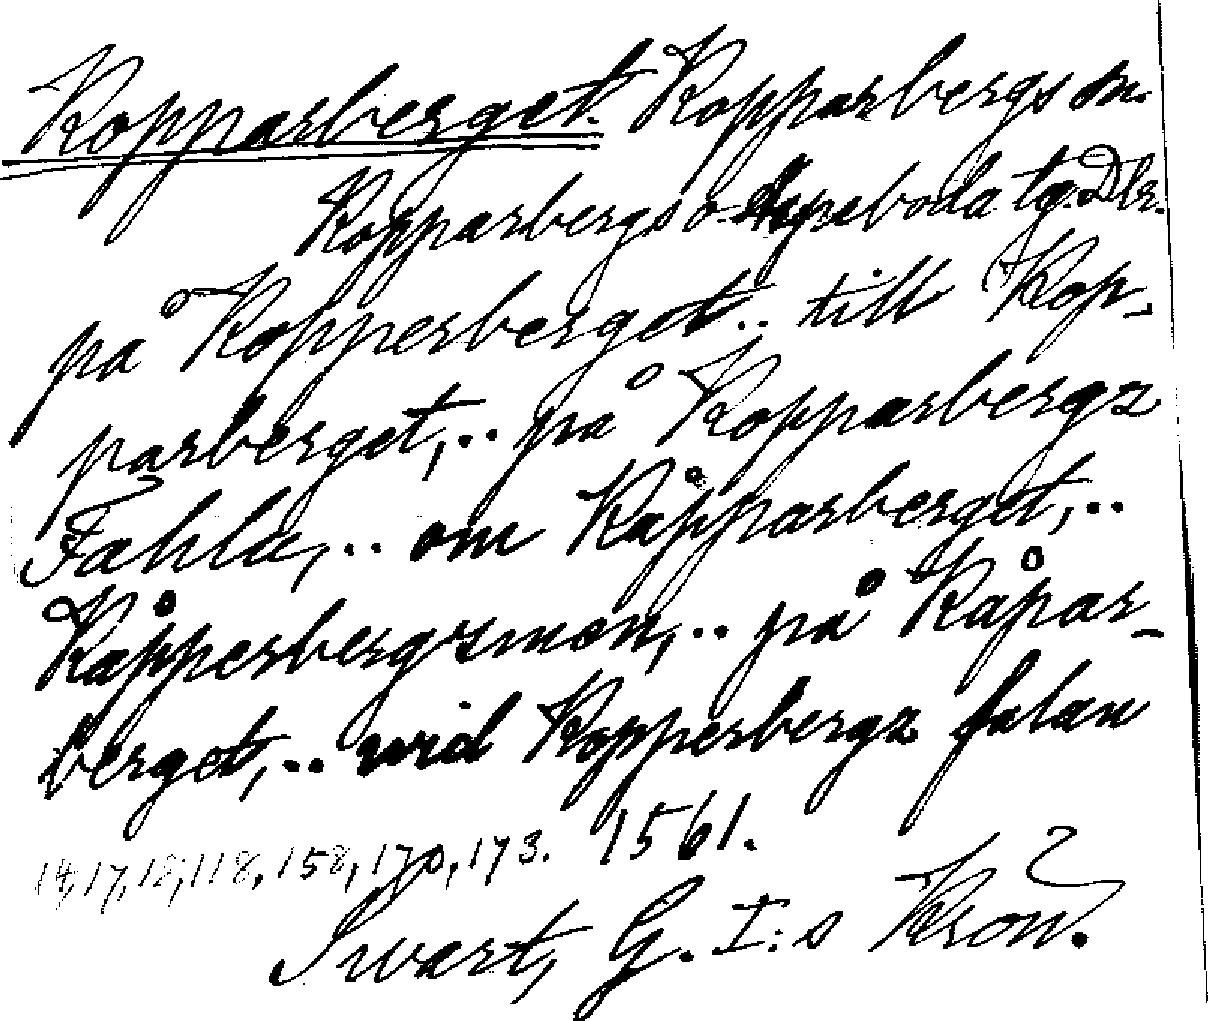 Kopparberget. Kopparbergs sn.
Kopparbergs o. Aspeboda tg. Dlr.
på Kopperberget.. till Kop-
parberget,.. på Kopparbergz
Fahla,.. om Kåpparberget,..
Kåpperbergzmen,.. på Kåpar-
berget,.. wid Kopperbergz falan
14, 17, 18, 118, 158, 170, 173. 1561.
Swart, G. I:s Krön.